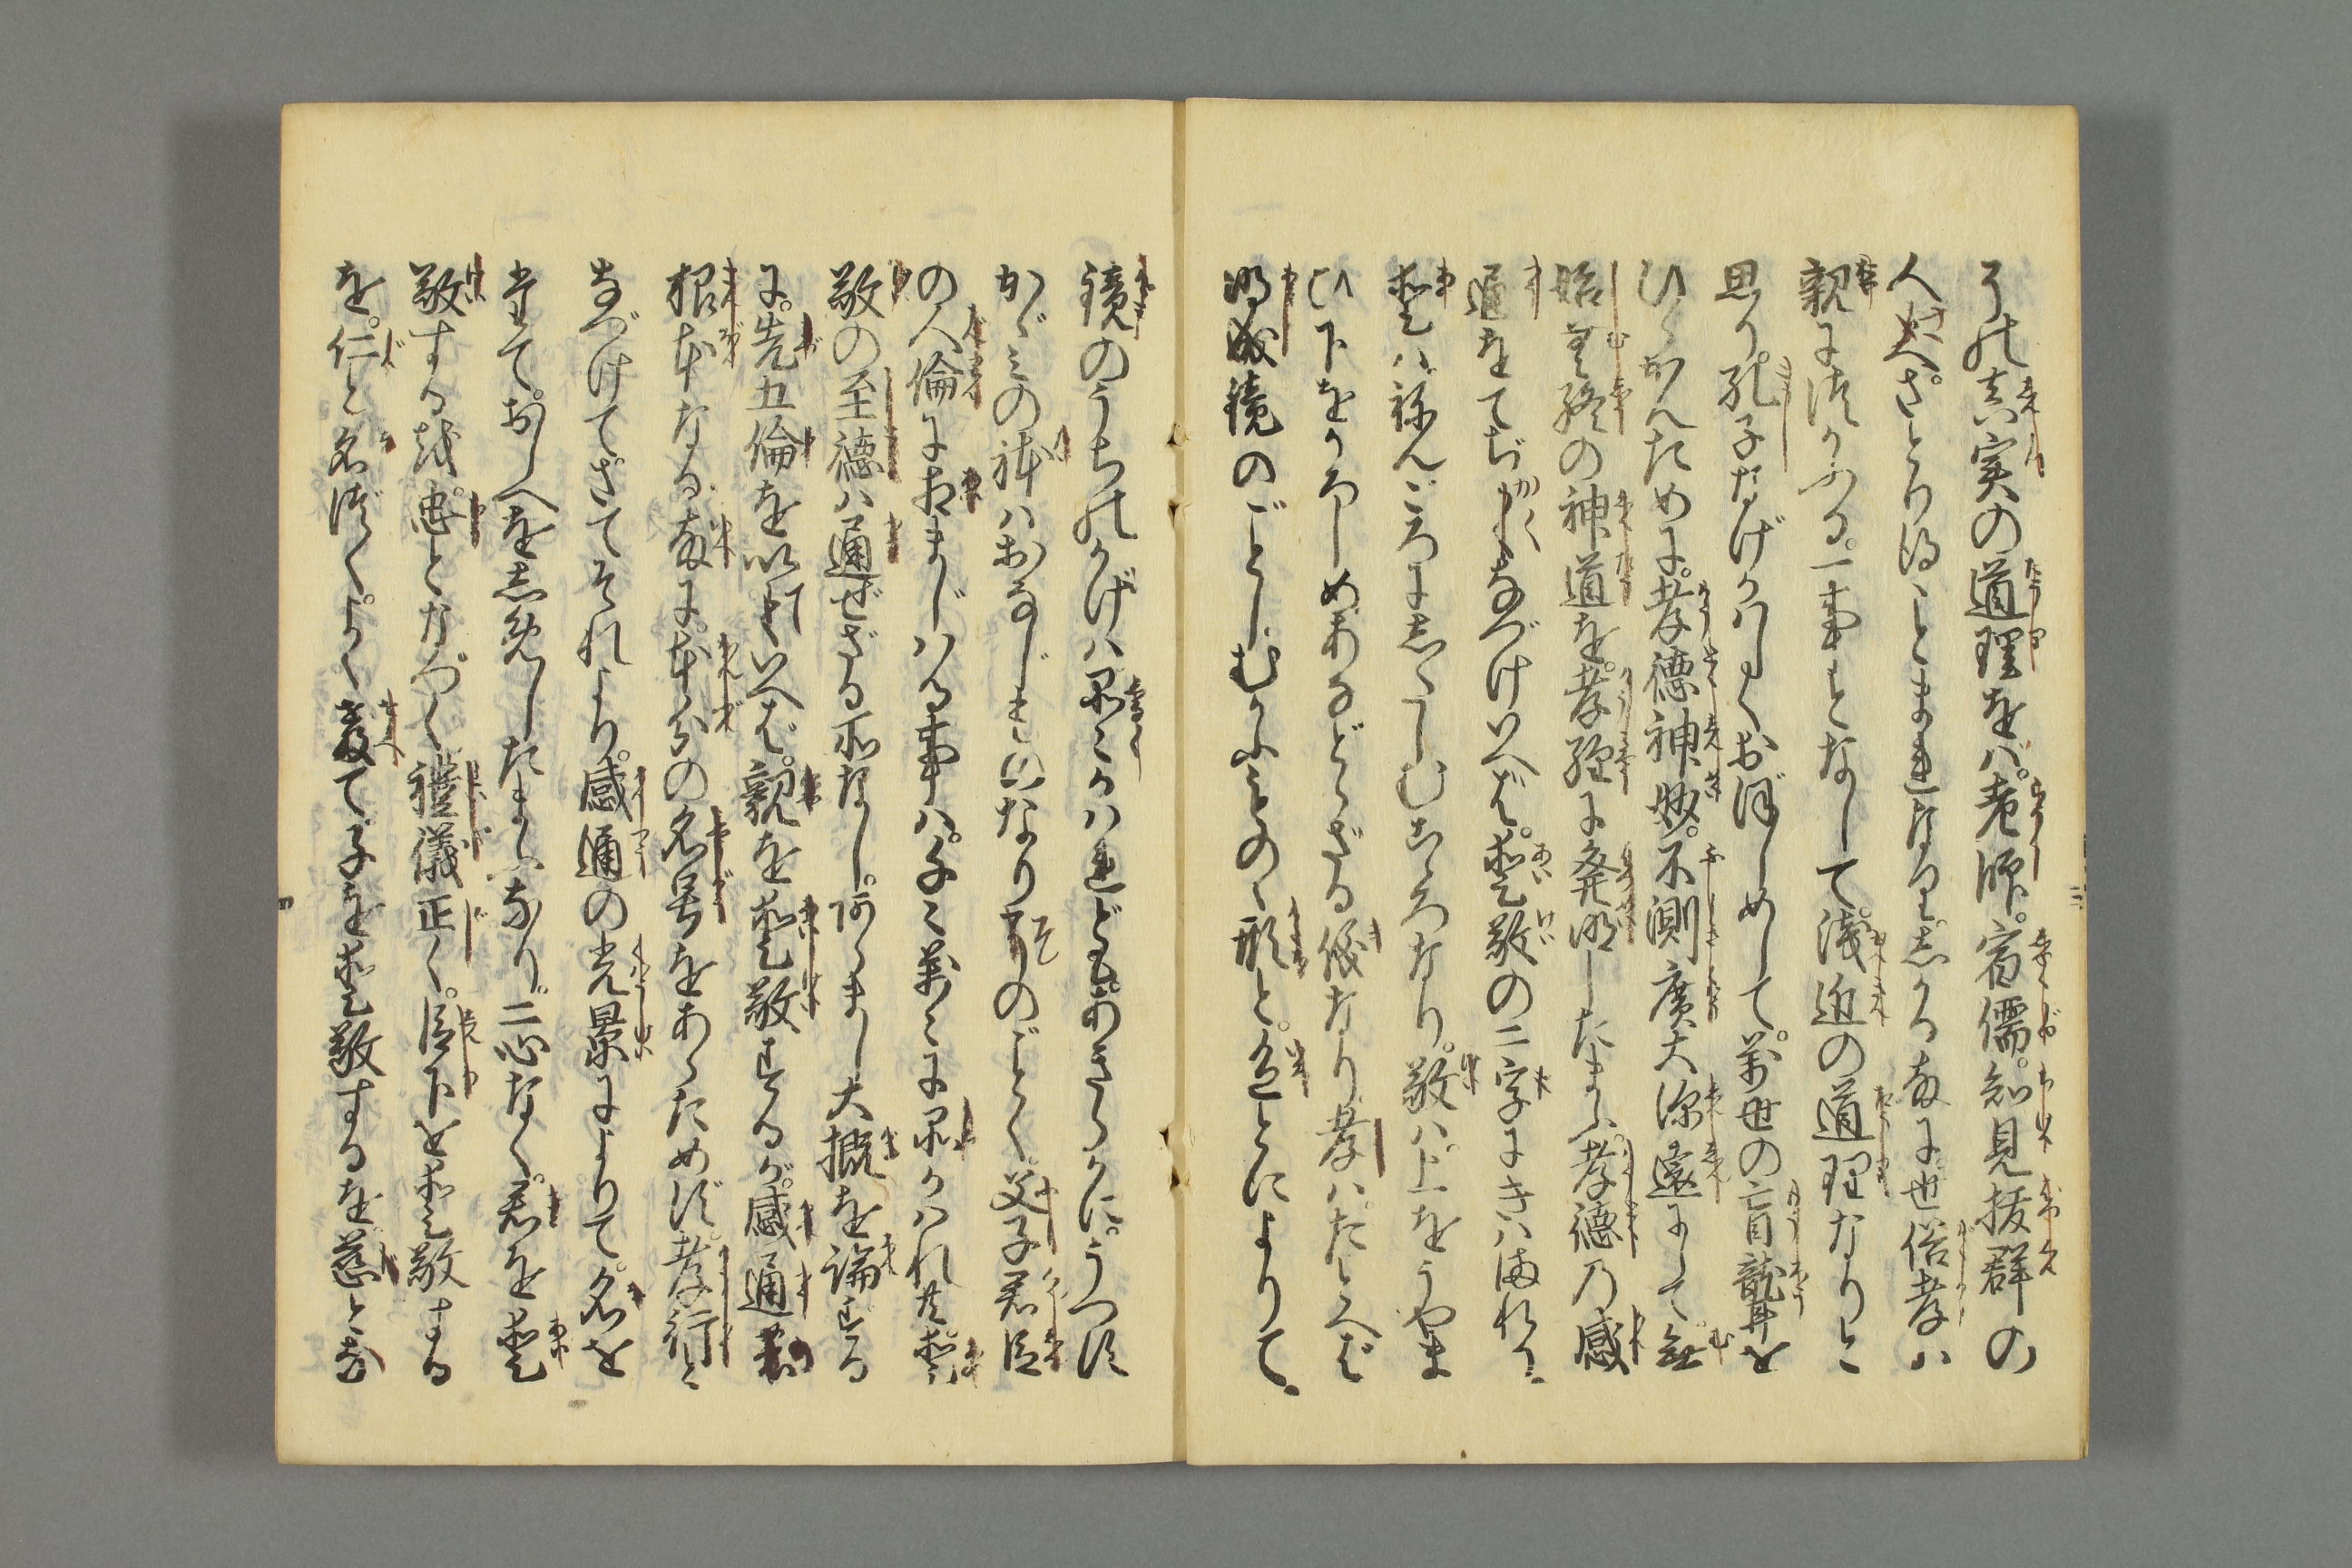 うの真実の道理をバ。老師。宿儒。知見抜群の
人さへさとりゆることまれなり。しかる故に世俗孝ハ
親につかふる。一事となして。浅近の道理なりと
思り。孔子なげかハしくおぼしめして。萬世の盲聾を
ひらかんために。孝徳神妙。不測廣大深遠にして。無
始無終の神道を。孝経に発明したまふ。孝徳乃感
通をてぢかくなづけいへば。愛敬の二字にきハまれり。
愛ハねんごろにしたしむこゝろなり。敬ハ。上をうやま
ひ下をかろしめあなどらざる儀なり。孝ハたとへば
明成鏡のごとし。むかふものゝ形と。色とによりて。
鏡のうちのかげハ品々かハれども。あきらかに。うつす
かゞみの体ハおなじものなり そのごとく。父子君臣
の人倫に相まじハる事ハ。千々萬々に品かハれ共。愛
敬の至徳ハ通ぜざる所なし。あらまし大概を論ずる
に。先五倫を以ていへば。親を愛敬するが。感通の
根本なる故に。本分の名号をあらためず。孝行と
なづけて。さてそれより。感通の光景によりて。名を
たてて。おしへをしめしたまふなり。二心なく。君を愛
敬するを。忠となづく 禮儀正く。臣下を愛敬する
を。仁と名づく。よく教て子を愛敬するを。慈とな